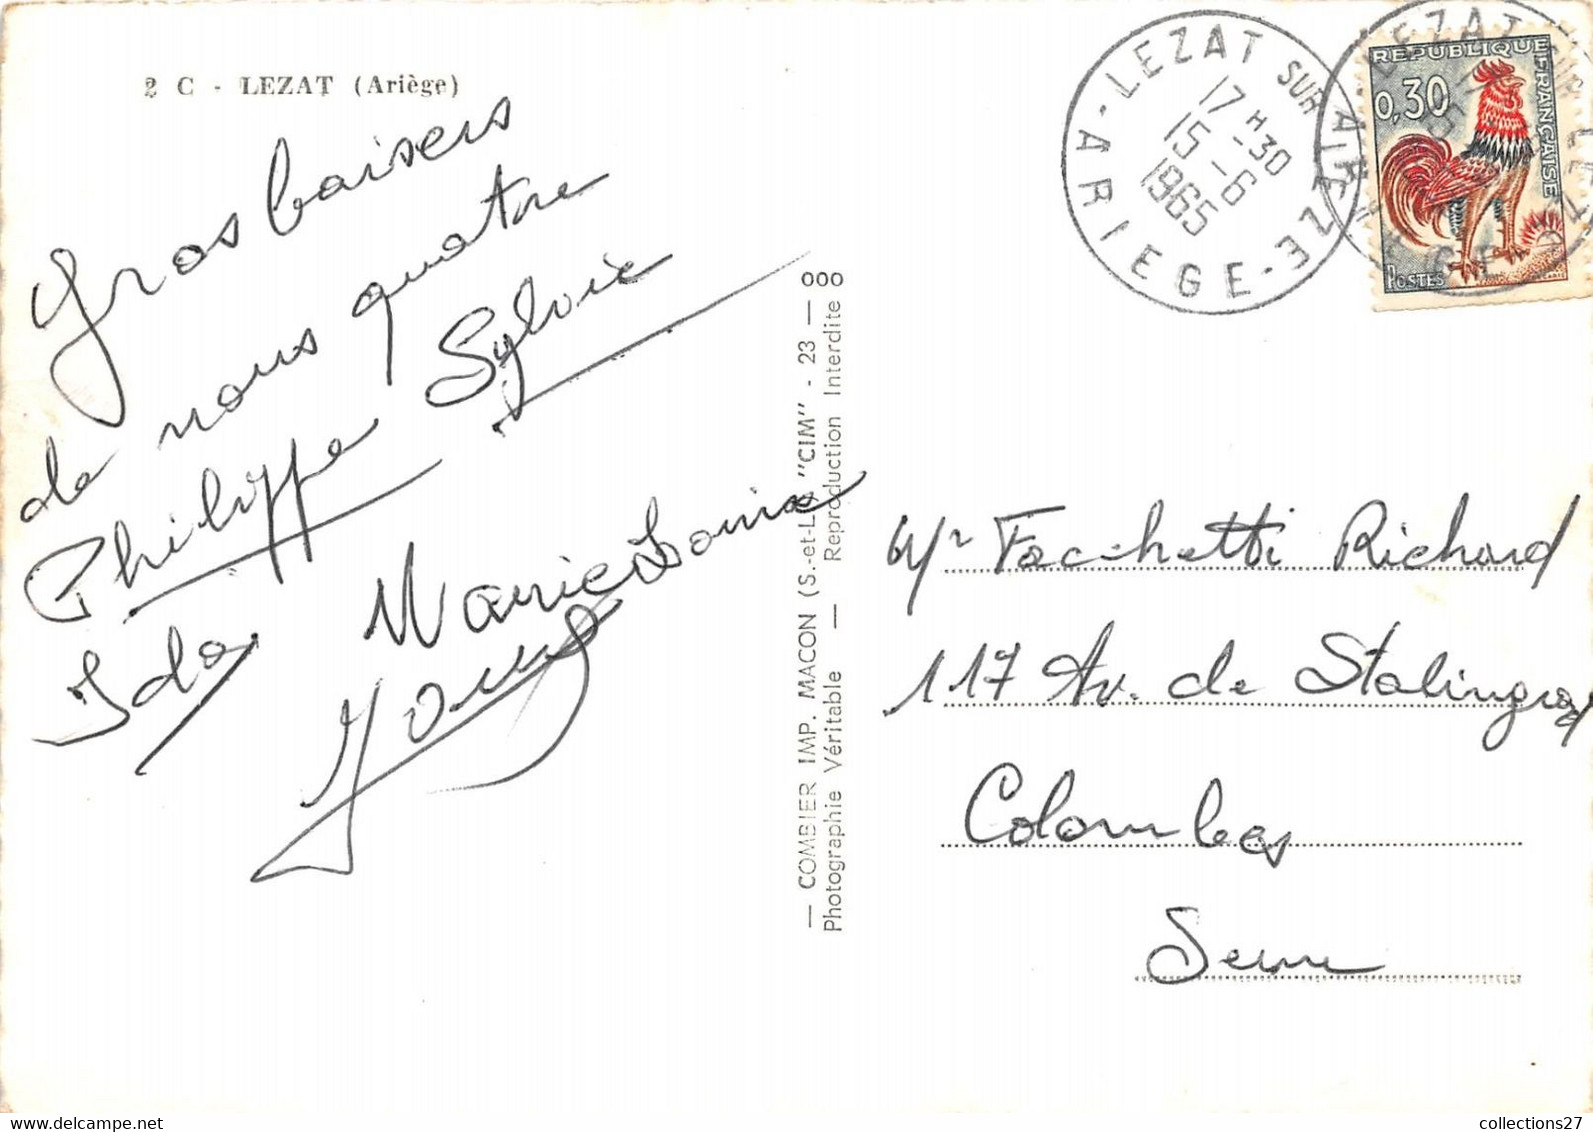 2 C - LEZAT (Ariège)
Gros baisers
de nous quatre
Philippe Sylvie
Ida Marie Louise
— COMBIER IMP. MACON (S.-et-L.) "CIM" - 23 — 000
Photographie Véritable — Reproduction Interdite
- LEZAT SUR LEZE -
ARIEGE
17H30
15-6
1965
REPUBLIQUE FRANÇAISE
0,30
POSTES
Mr Facchetti Richard
117 Av. de Stalingrad
Colombes
Seine
collections27